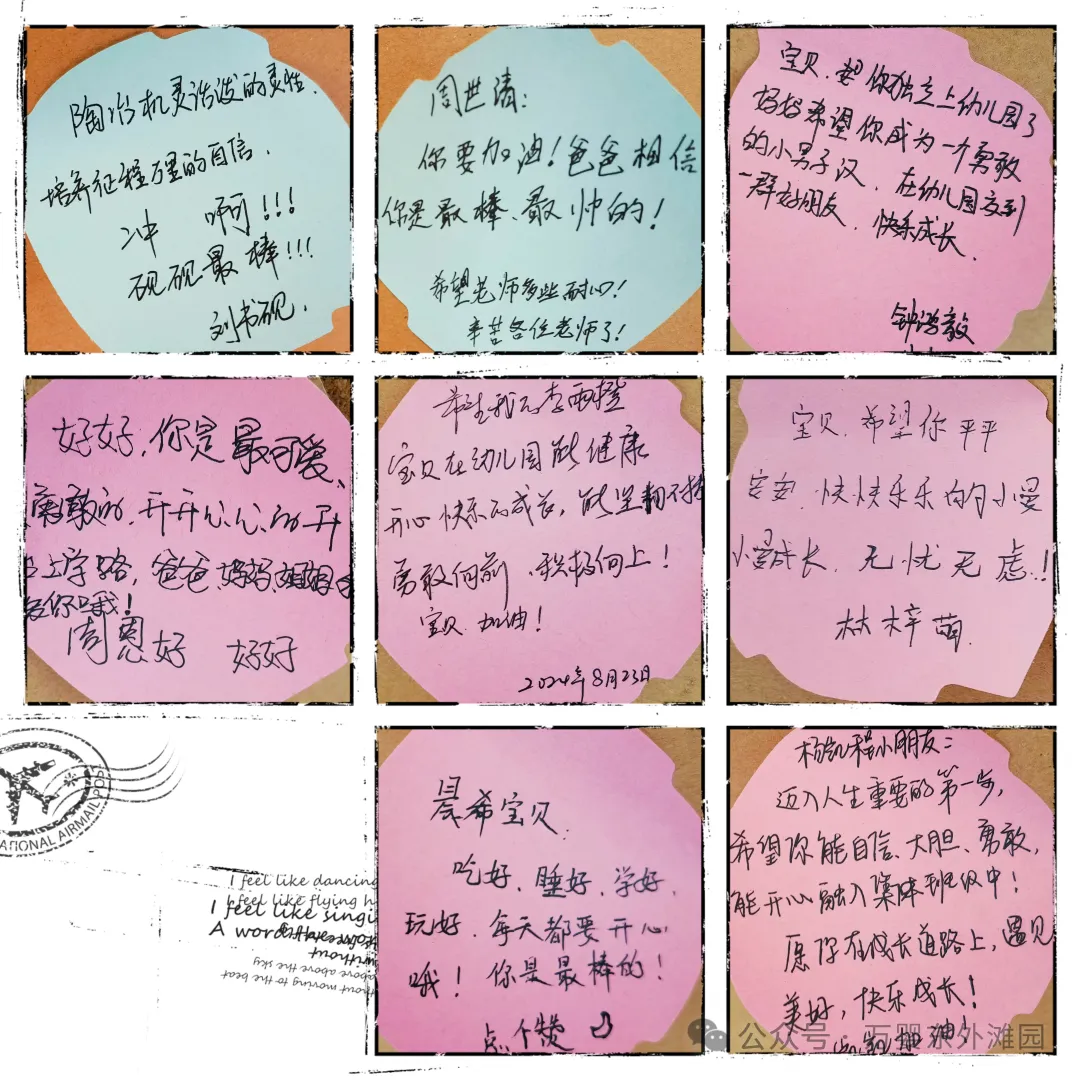 陶冶机灵活泼的灵性.
培养征程万里的自信.
冲 啊!!!
砚砚最棒!!!
刘书砚.
周世清:
你要加油!爸爸相信
你是最棒、最帅的!
希望老师多些耐心!
辛苦各位老师了!
宝贝.要你独立上幼儿园了
妈妈希望你成为一个勇敢
的小男子汉.在幼儿园交到
一群好朋友.快乐成长.
好好,你是最可爱、
勇敢的.开开心心的开
上学路,爸爸、妈妈、姐姐
爱你哦!
周恩好 好好
希望我们李雨橙
宝贝在幼儿园能健康
开心快乐的成长,能坚韧不拔
勇敢向前.积极向上!
宝贝.加油!
2024年8月23日
宝贝.希望你平平
安安.快快乐乐的小曼
小曼成长.无忧无虑.!
林梓萌.
晨希宝贝.
吃好、睡好、学好、
玩好.每天都要开心
哦!你是最棒的!
点个赞
杨凯程小朋友:
迈入人生重要的第一步,
希望你能自信、大胆、勇敢,
能开心融入集体班级中!
愿你在成长道路上,遇见
美好,快乐成长!
加油!
NATIONAL AIRMAIL POS
I feel like dancing
I feel like flying h
I feel like singi
A word
without
above above the sky
thout moving to the beat
公众号 万婴东外滩园